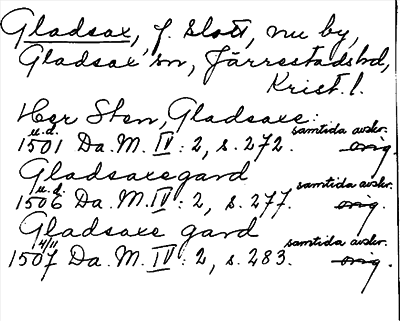 Gladsax, f. slott, nu by,
Gladsax sn, Järrestads hd,
Krist. l.
Herr Sten, Gladsaxe:
samtida avskr.
u.d.
1501 Da. M. IV: 2, s. 272. orig.
Gladsaxegard
samtida avskr.
u.d.
1506 Da. M. IV: 2, s. 277. orig.
Gladsaxe gard
samtida avskr.
4/11
1507 Da. M. IV: 2, s. 283. orig.